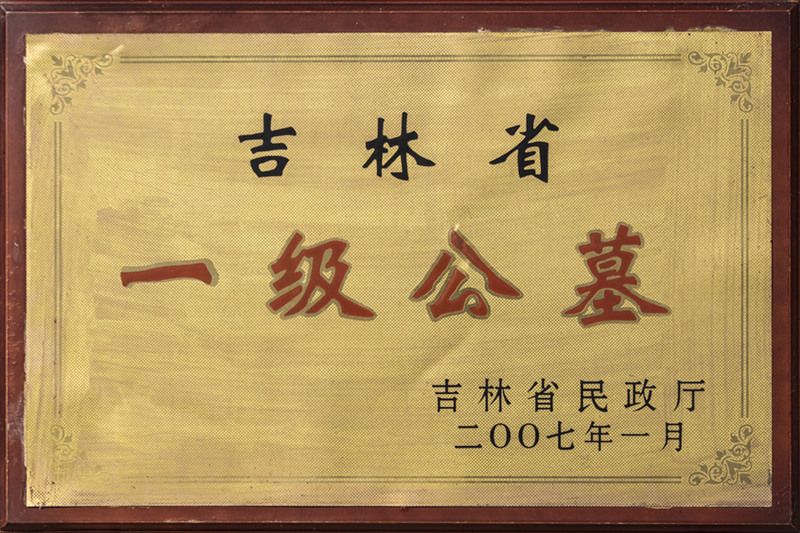 吉林省
一级公墓
吉林省民政厅
二〇〇七年一月